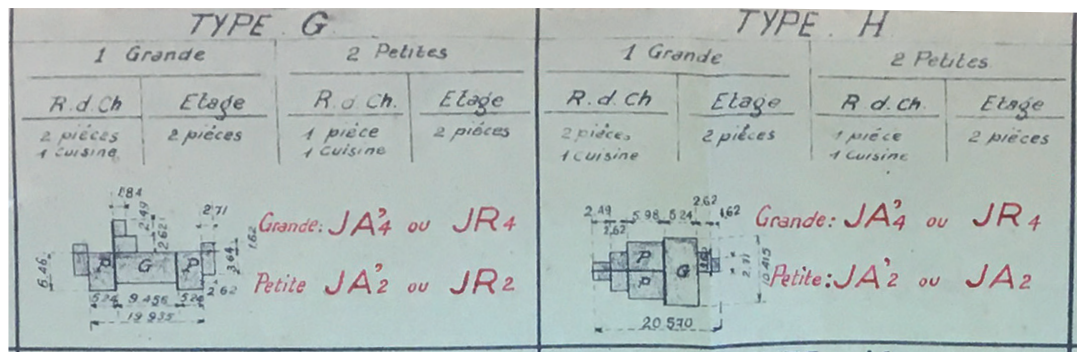 TYPE G
1 Grande
2 Petites
R.d.Ch
Etage
R.d.Ch.
Etage
2 pièces
1 cuisine
2 pièces
1 pièce
1 Cuisine
2 pièces
1.84
2.49
2.62
2.71
1.62
3.64
2.62
6.46
P
G
P
5.24
9.456
5.24
19.935
Grande: JA'4 ou JR4
Petite JA'2 ou JR2
TYPE H
1 Grande
2 Petites
R.d.Ch
Etage
R.d.ch.
Etage
2 pièces
1 Cuisine
2 pièces
1 pièce
1 Cuisine
2 pièces
2.49
2.62
5.98
5.24
2.62
1.62
P
P
G
2.71
10.415
20.570
Grande: JA'4 ou JR4
Petite: JA'2 ou JA2